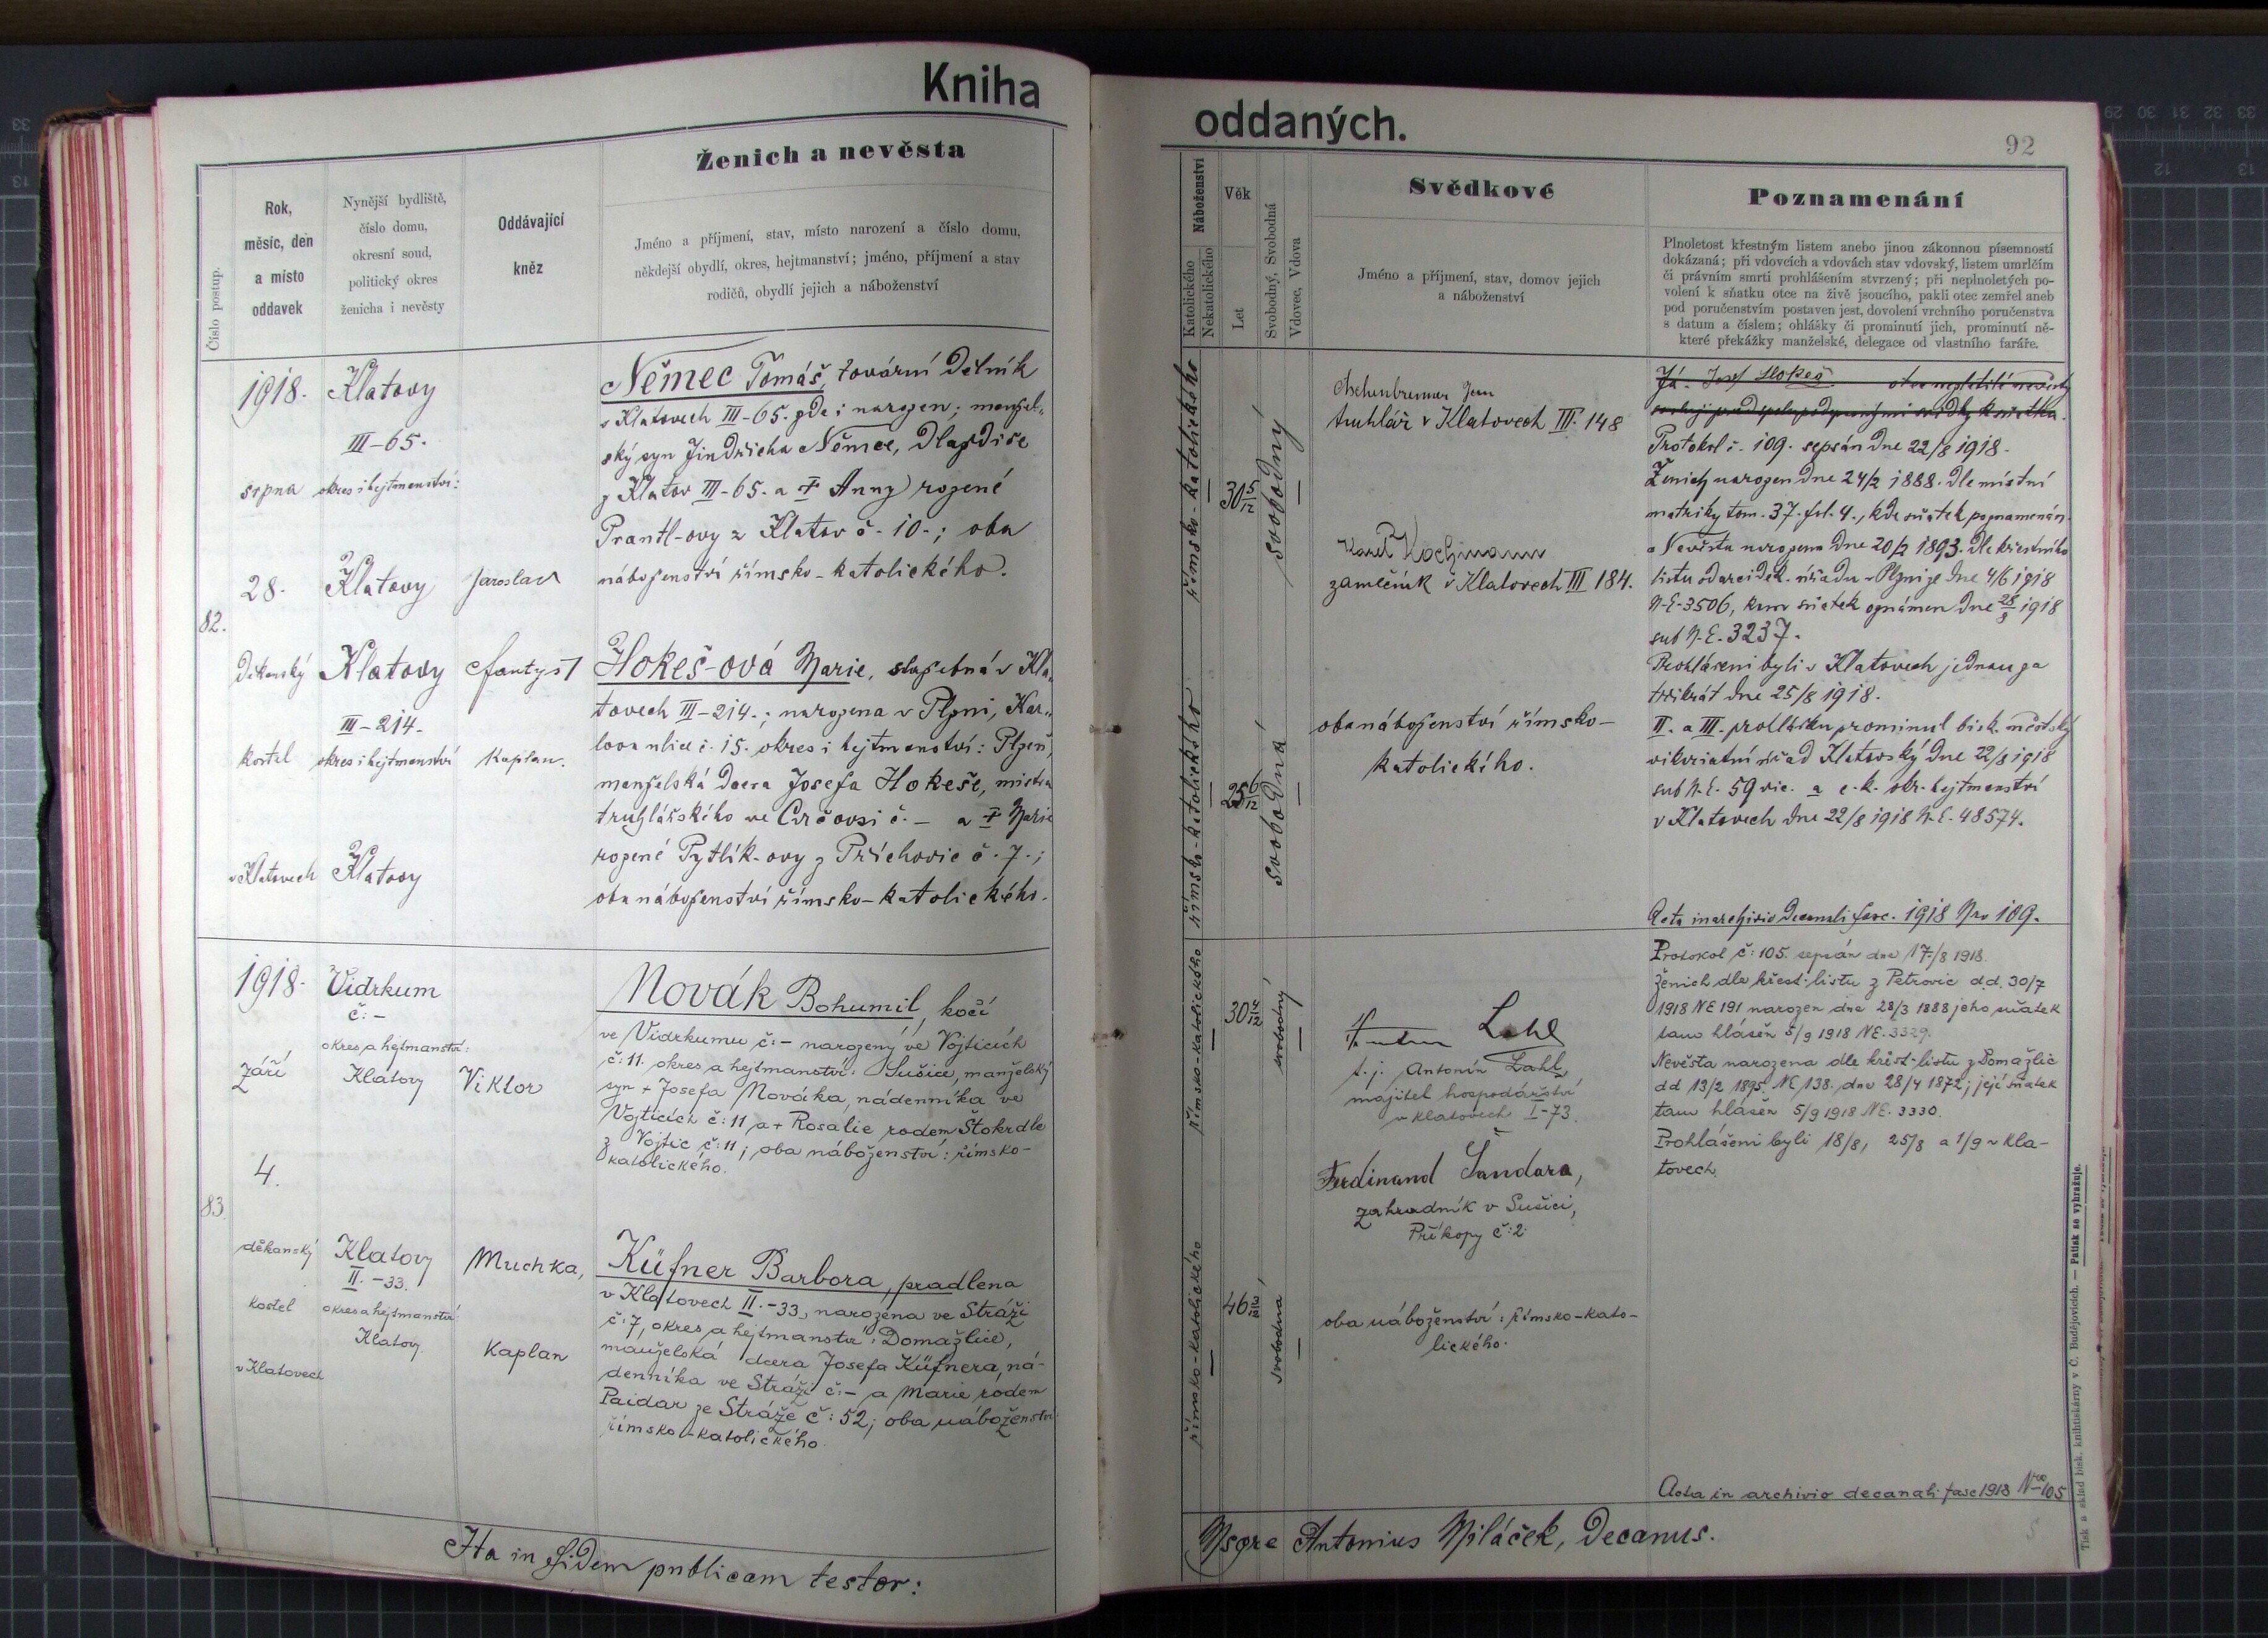 Kniha
oddaných.
92
Číslo postup.
Rok,
měsíc, den
a místo
oddavek
Nynější bydliště,
číslo domu,
okresní soud,
politický okres
ženicha i nevěsty
Oddávající
kněz
Ženich a nevěsta
Jméno a příjmení, stav, místo narození a číslo domu,
někdejší obydlí, okres, hejtmanství; jméno, příjmení a stav
rodičů, obydlí jejich a náboženství
Náboženství
Katolického
Nekatolického
Věk
Let
Svobodný, Svobodná
Vdovec, Vdova
Svědkové
Jméno a příjmení, stav, domov jejich
a náboženství
Poznamenání
Plnoletost křestným listem anebo jinou zákonnou písemností
dokázaná; při vdovcích a vdovách stav vdovský, listem umrlčím
či právním smrti prohlášením stvrzený; při neplnoletých po-
volení k sňatku otce na živě jsoucího, pakli otec zemřel aneb
pod poručenstvím postaven jest, dovolení vrchního poručenstva
s datum a číslem; ohlášky či prominutí jich, prominutí ně-
které překážky manželské, delegace od vlastního faráře.
82.
1918.
srpna
28.
Děkanský
kostel
v Klatovech
Klatovy
III-65.
okres i hejtmanství:
Klatovy
Klatovy
III-214.
okres i hejtmanství
Klatovy
Jaroslav
Kaplan.
Němec Tomáš, tovární dělník
v Klatovech III-65. zde i narozen; manžel-
ský syn Jindřicha Němce, dlaždiče
z Klatov III-65. a + Anny rozené
Prantl-ovy z Klatov č. 10.; oba
náboženství římsko-katolického.
Hokeš-ová Marie, služebná v Kla-
tovech III-214.; narozena v Plzni, Kar-
lova ulice č. 15. okres i hejtmanství: Plzeň,
manželská dcera Josefa Hokeše, mistra
truhlářského ve Crčovsi č. - a + Marie
rozené Pytlík-ovy z Příchovic č. 7.;
oba náboženství římsko-katolického.
římsko-katolického
římsko-katolického
30 5/12
25 6/12
svobodný
svobodná
Aschenbrenner Jan
truhlář v Klatovech III. 148
Karel Hochmann
zámečník v Klatovech III 184.
oba náboženství římsko-
katolického.
Já. Josef Hokeš otec neplnoleté nevěsty
Protokol č. 109. sepsán dne 22/8 1918.
Ženich narozen dne 24/2 1888. dle místní
matriky tom. 37. fol. 4., kde sňatek poznamenán.
a Nevěsta narozena dne 20/2 1893. dle křestního
listu od arciděk. úřadu v Plzni ze dne 4/6 1918
N.E. 3506, kam sňatek oznámen dne 28/8 1918
sub N.E. 3237.
Prohlášeni byli v Klatovech jednou za
třikrát dne 25/8 1918.
II. a III. prohlášku prominul bisk. městský
vikariatní úřad Klatovský dne 22/8 1918
sub N.E. 59 vic. a c. k. okr. hejtmanství
v Klatovech dne 22/8 1918 N.E. 48574.
Acta in archivio decanali fasc. 1918 Nro 109.
83.
1918.
září
4.
děkanský
kostel
v Klatovech
Vidrkum
č: -
okres a hejtmanství:
Klatovy
Klatovy
II. -33.
okres a hejtmanství
Klatovy
Viktor
Muchka,
Kaplan
Novák Bohumil, kočí
ve Vidrkumu č: - narozený ve Vojticích
č: 11. okres a hejtmanství: Sušice, manželský
syn + Josefa Nováka, nádenníka ve
Vojticích č: 11 a + Rosalie rodem Štokrdle
z Vojtic č: 11; oba náboženství: římsko-
katolického.
Küfner Barbora, pradlena
v Klatovech II. -33, narozena ve Stráži
č: 7, okres a hejtmanství: Domažlice,
manželská dcera Josefa Küfnera, ná-
denníka ve Stráži č: - a Marie rodem
Paidar ze Stráže č: 52; oba náboženství
římsko-katolického
římsko-katolického
římsko-katolického
30 4/12
46
svobodný
svobodna
Lahl
t. j. Antonín Lahl,
majitel hospodářství
v Klatovech I-73.
Ferdinand Šandara,
zahradník v Sušici,
Příkopy č: 2.
oba náboženství: římsko-kato-
lického.
Protokol č: 105. sepsán dne 17/8 1918.
Ženich dle křest. listu z Petrovic d.d. 30/7
1918 NE 191 narozen dne 28/3 1888 jeho sňatek
tam hlášen 5/9 1918 NE. 3329.
Nevěsta narozena dle křest. listu z Domažlic
dd 13/2 1895. NE 138. dne 28/4 1872; její sňatek
tam hlášen 5/9 1918 NE. 3330.
Prohlášeni byli 18/8, 25/8 a 1/9 v Kla-
tovech.
Acta in archivio decanali fasc 1918 Nro 105
Ita in fidem publicam testor:
Msgre Antonius Miláček, Decanus.
Tisk a sklad bisk. knihtiskárny v Č. Budějovicích. — Patisk se vyhražuje.